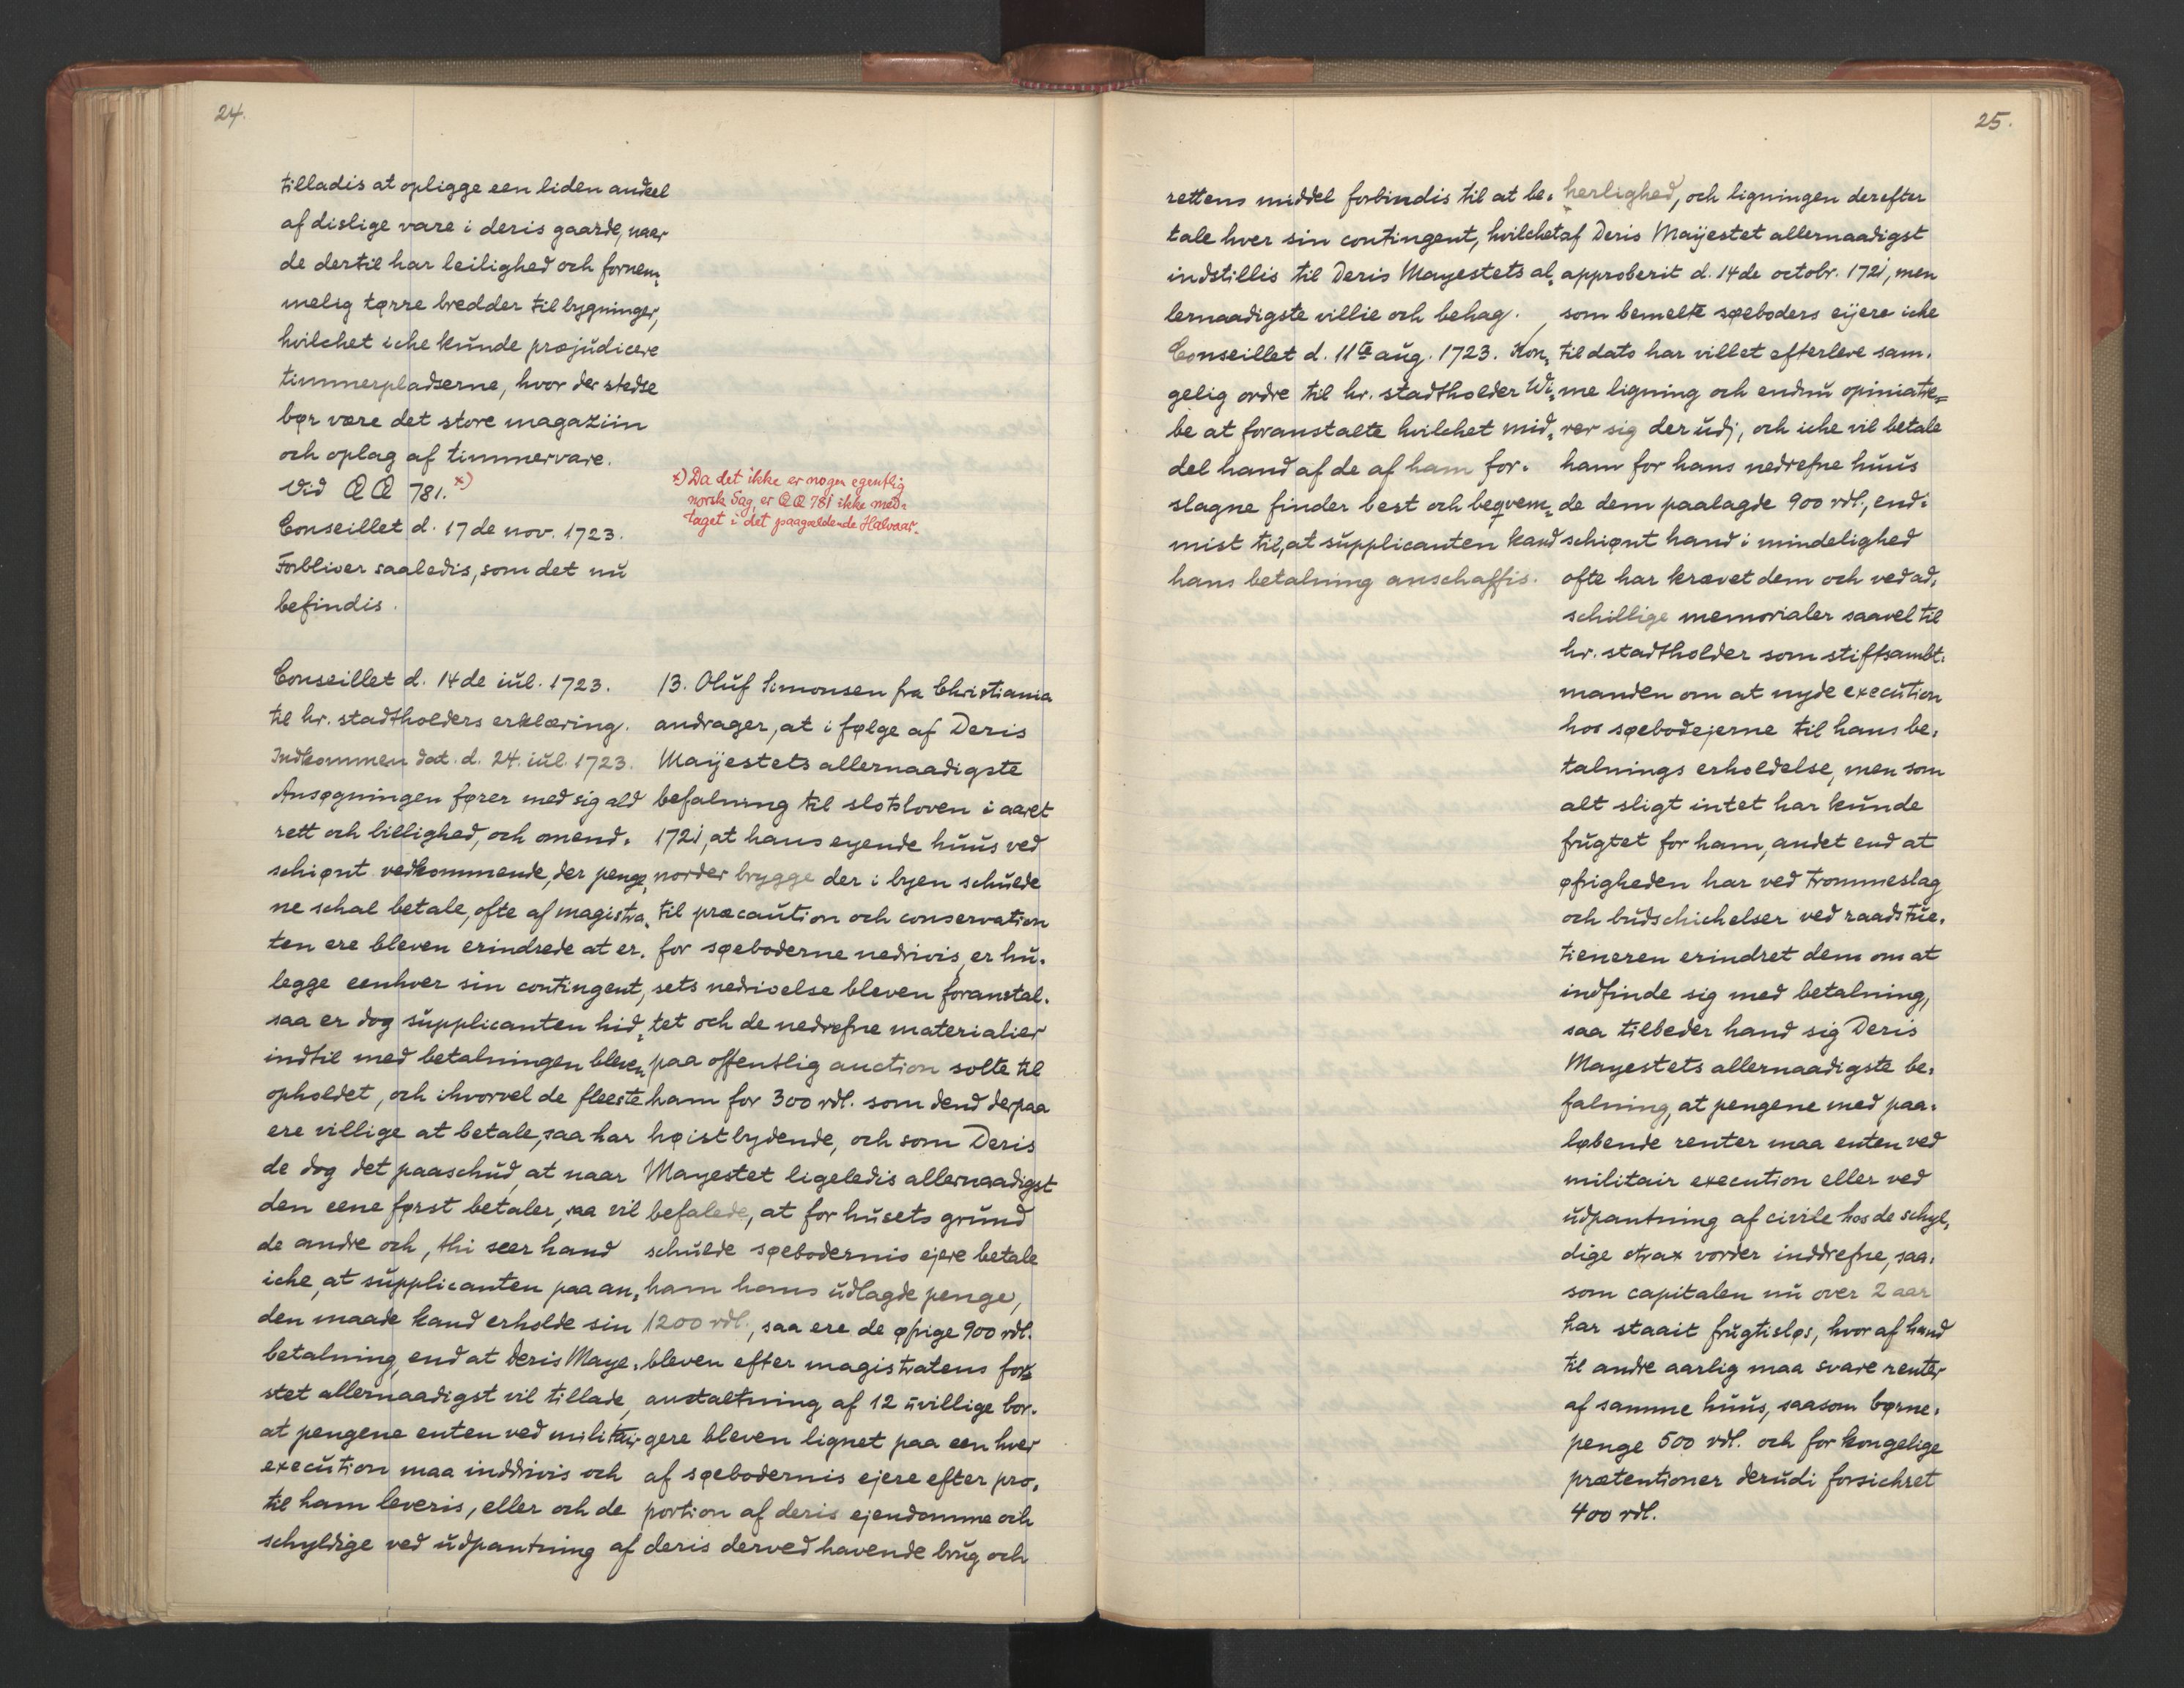 24.
tilladis at opligge een liden andeel
af dislige vare i deris gaarde, naar
de dertil har leilighed och fornem,
melig tørre bredder til bygninger,
hvilchet iche kunde præjudicere
timmerpladserne, hvor der stedse
bør være det store magaziin
och oplag af timmervare.
Vid Q Q 781. x)
Conseillet d. 17de nov. 1723.
Forbliver saaledis, som det nu
befindis.
x) Da det ikke er nogen egentlig
norsk Sag, er QQ 781 ikke med-
taget i det paagældende Halvaar.
Conseillet d. 14de iul. 1723.
til hr. stadtholders erklæring.
Indkommen dat. d. 24. iul. 1723.
Ansøgningen fører med sig ald
rett och billighed, och omend-
schiønt vedkommende, der penge,
ne schal betale, ofte af magistra,
ten ere bleven erindrede at er-
legge eenhver sin contingent,
saa er dog supplicanten hid,
indtil med betalningen bleven
opholdet, och ihvorvel de fleeste
ere villige at betale, saa har
de dog det paaschud, at naar
den eene først betaler, saa vil
de andre och, thi seer hand
iche, at supplicanten paa an,
den maade kand erholde sin
betalning, end at Deris Maye-
stet allernaadigst vil tillade,
at pengene enten ved militair
execution maa inddrivis och
til ham leveris, eller och de
schyldige ved udpantning af
13. Oluf Simonsen fra Christiania
andrager, at i følge af Deris
Mayestets allernaadigste
befalning til slotsloven i aaret
1721, at hans eyende huus ved
norder brygge der i byen schulde
til præcaution och conservation
for søeboderne nedrivis, er hu-
sets nedrivelse bleven foranstal-
tet och de nedrefne materialier
paa offentlig auction solte til
ham for 300 rdl. som dend derpaa
høistbydende, och som Deris
Mayestet ligeledis allernaadigst
befalede, at for husets grund
schulde søebodernis ejere betale
ham hans udlagde penge,
1200 rdl., saa ere de øfrige 900 rdl.
bleven efter magistratens for-
anstaltning af 12 uvillige bor-
gere bleven lignet paa een hver
af søebodernis ejere efter pro-
portion af deris ejendomme och
deris derved havende brug och
25.
rettens middel forbindis til at be-
tale hver sin contingent, hvilchet
indstillis til Deris Mayestets al,
lernaadigste villie och behag.
Conseillet d. 11te aug. 1723. Kon,
gelig ordre til hr. stadtholder Wi,
be at foranstalte hvilchet mid,
del hand af de af ham for-
slagne finder best och beqvem,
mist til, at supplicanten kand
hans betalning anschaffis.
herlighed, och ligningen derefter
af Deris Mayestet allernaadigst
approberit d. 14de octobr. 1721, men
som bemelte søeboders eijere iche
til dato har villet efterleve sam-
me ligning och endnu opiniatre=
rer sig der udj, och iche vil betale
ham for hans nedrefne huus
de dem paalagde 900 rdl., end-
schiønt hand i mindelighed
ofte har krævet dem och ved ad,
schillige memorialer saavel til
hr. stadtholder som stiftsambt-
manden om at nyde execution
hos søebodejerne til hans be-
talnings erholdelse, men som
alt sligt intet har kunde
frugtet for ham, andet end at
øfrigheden har ved trommeslag
och budschichelser ved raadstue-
tieneren erindret dem om at
indfinde sig med betalning,
saa tilbeder hand sig Deris
Mayestets allernaadigste be-
falning, at pengene med paa-
løbende renter maa enten ved
militair execution eller ved
udpantning af civile hos de schyl,
dige strax vorder inddrefne, saa-
som capitalen nu over 2 aar
har staait frugtisløs, hvoraf hand
til andre aarlig maa svare renter
af samme huus, saasom børne-
penge 500 rdl. och for kongelige
prætentioner derudi forsichret
400 rdl.